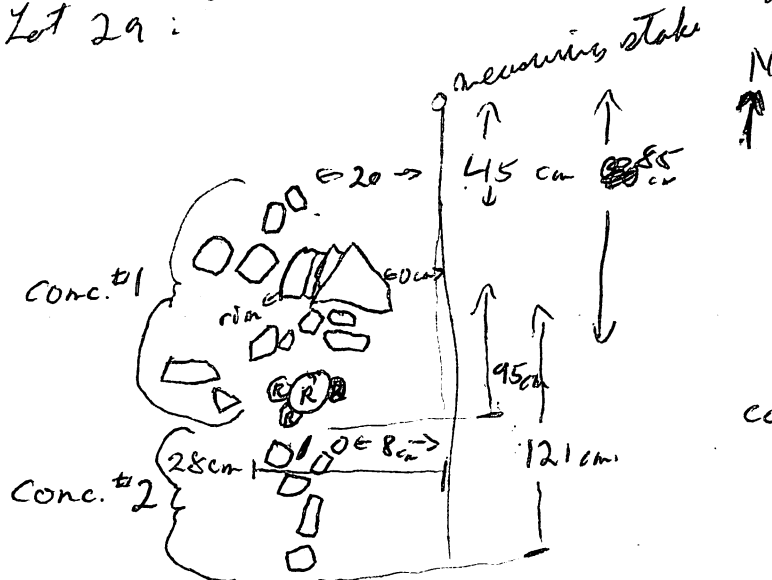 Lot 29 :
measuring stake
N
← 20 →
45 cm
85 cm
Conc. #1
rim
0cm
R R R
95cm
28cm
← 8cm →
121 cm.
Conc. #2